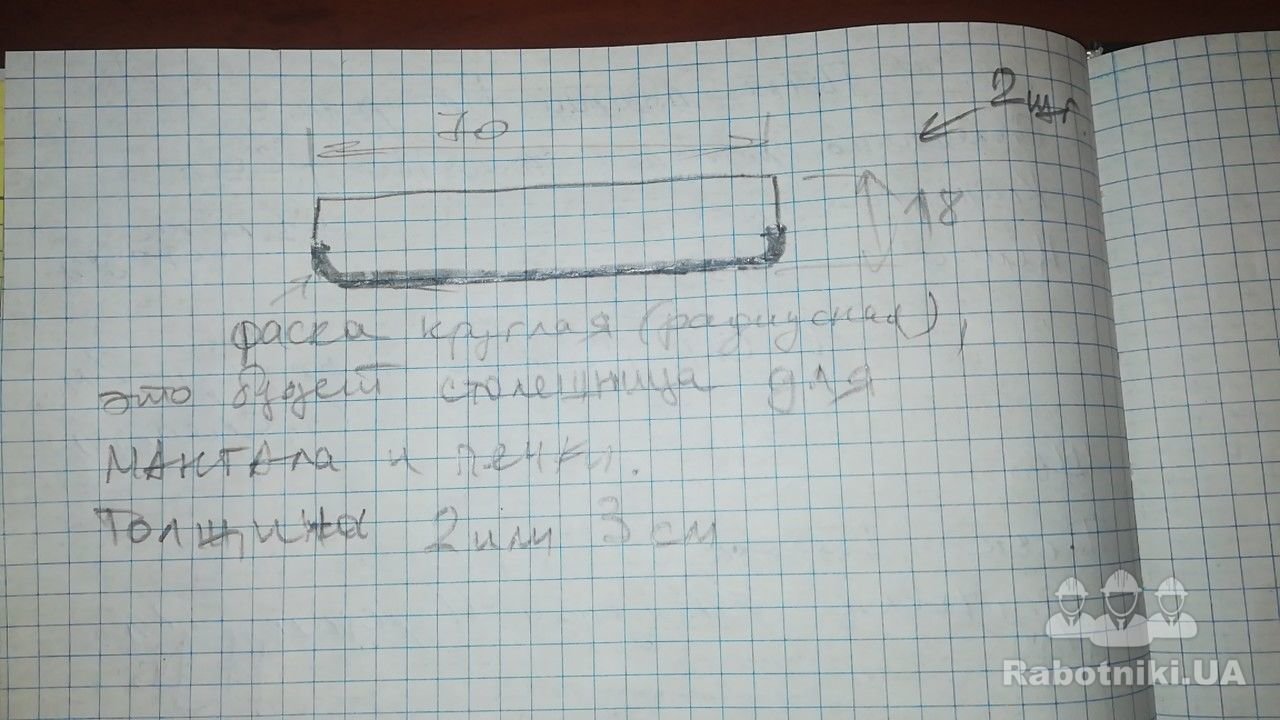 2 шт.
70
18
фаска круглая (радиусная),
это будет столешница для
мангала и печки.
Толщина 2 или 3 см.
Rabotniki.UA